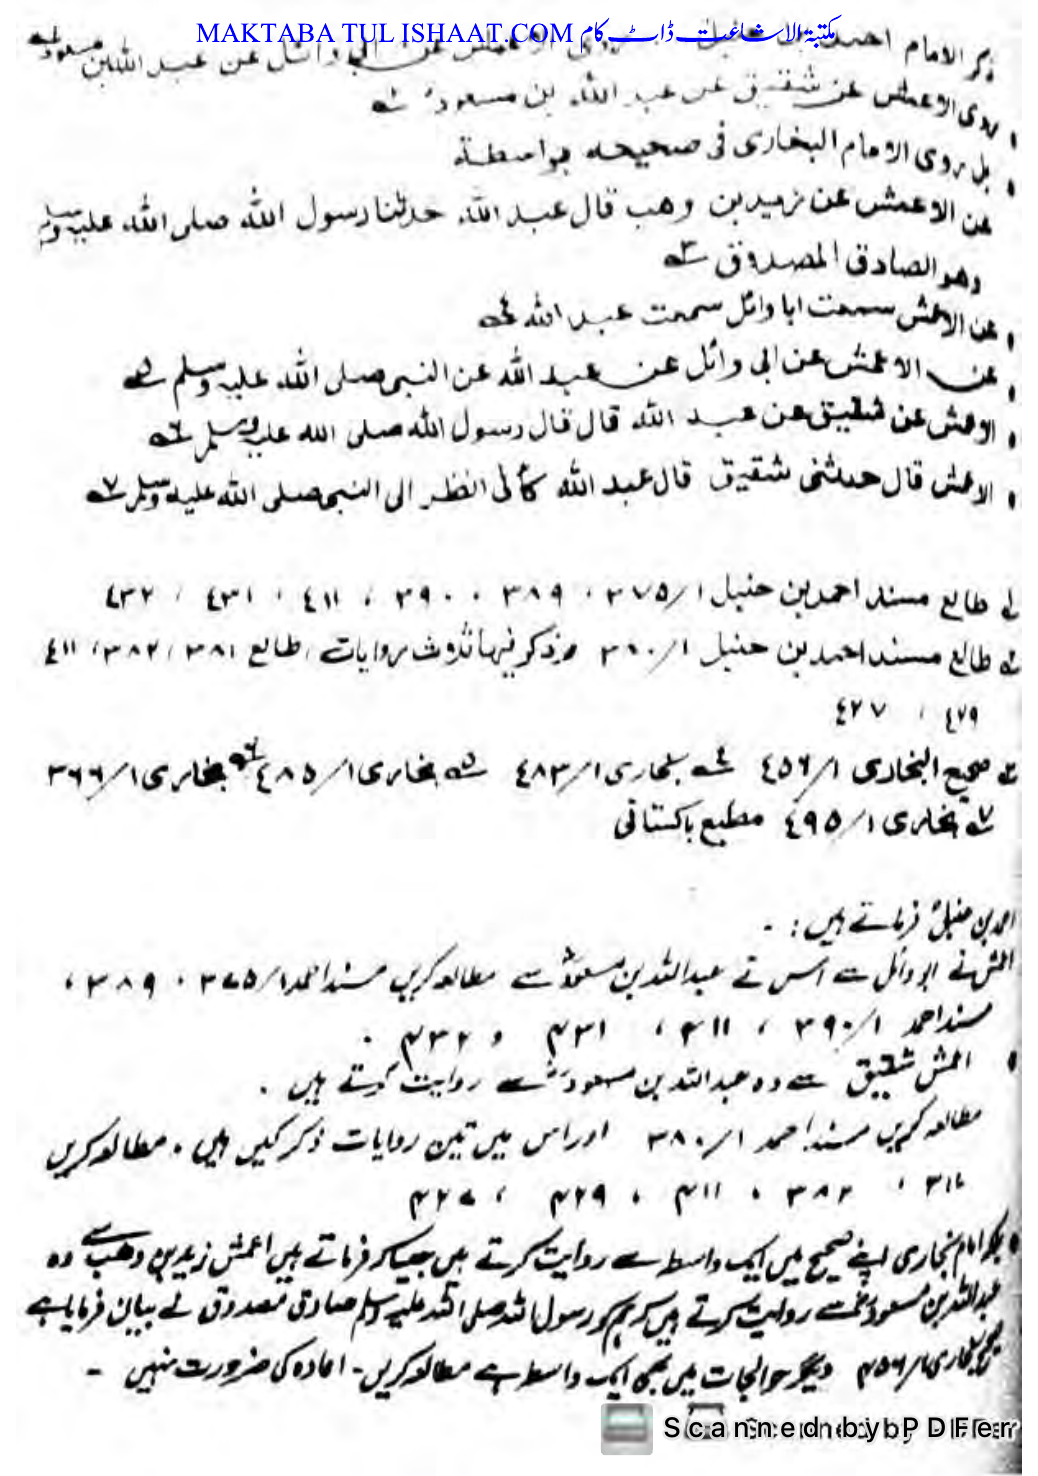 MAKTABA TUL ISHAAT.COM مکتبۃ الاشاعت ڈاٹ کام
ذكر الامام احمد روى الاعمش عن ابي وائل عن عبد الله بن مسعود ١ـه
روى الاعمش عن شقيق عن عبد الله بن مسعودؓ ٢ـه
بل روى الامام البخاري في صحيحه بواسطة
عن الاعمش عن زيد بن وهب قال عبد الله حدثنا رسول الله صلى الله عليه وسلم
وهو الصادق المصدوق ٣ـه
عن الاعمش سمعت ابا وائل سمعت عبد الله ٤ـه
عن الاعمش عن ابي وائل عن عبد الله عن النبي صلى الله عليه وسلم ٥ـه
الاعمش عن شقيق عن عبد الله قال قال رسول الله صلى الله عليه وسلم ٦ـه
الاعمش قال حدثني شقيق قال عبد الله كأني انظر الى النبي صلى الله عليه وسلم ٧ـه
١ـه طالع مسند احمد بن حنبل ١/٣٧٥، ٣٨٩، ٣٩٠، ٤١١، ٤٣١، ٤٣٢
٢ـه طالع مسند احمد بن حنبل ١/٣٨٠ وذكر فيها ثلاث روايات، طالع ٣٨١، ٣٨٢، ٤١١
٤٢٩، ٤٢٧
٣ـه صحيح البخاري ١/٤٥٦ ٤ـه بخاري ١/٤٨٣ ٥ـه بخاري ١/٤٨٥ ٦ـه بخاري ١/٣٦٦
٧ـه بخاري ١/٤٩٥ مطبع باكستاني
احمد بن حنبلؒ فرماتے ہیں: -
اعمش نے ابو وائل سے اس نے عبداللہ بن مسعودؓ سے مطالعہ کریں مسند احمد ۱/۳۷۵، ۳۸۹،
مسند احمد ۱/۳۹۰، ۴۱۱، ۴۳۱ و ۴۳۲ ۔
اعمش شقیق سے وہ عبداللہ بن مسعودؓ سے روایت کرتے ہیں ۔
مطالعہ کریں مسند احمد ۱/۳۸۰ اور اس میں تین روایات ذکر کیں ہیں ۔ مطالعہ کریں
۳۸۲، ۴۱۱، ۴۲۹، ۴۲۷
بلکہ امام بخاری اپنے صحیح میں ایک واسطہ سے روایت کرتے ہیں جیسا کہ فرماتے ہیں اعمش زید بن وھب سے وہ
عبداللہ بن مسعودؓ سے روایت کرتے ہیں کہ ہم کو رسول اللہ صلی اللہ علیہ وسلم صادق مصدوق نے بیان فرمایا ہے
صحیح بخاری ۱/۴۵۶ دیگر حوالجات میں بھی ایک واسطہ ہے مطالعہ کریں - اعادہ کی ضرورت نہیں -
Scanned by PDFer